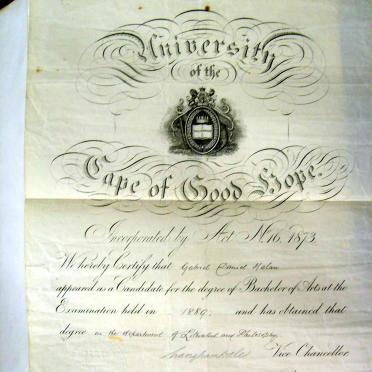 University
of the
Cape of Good Hope.
Incorporated by Act No. 16, 1873.
We hereby Certify that Gabriel Daniel
appeared as a Candidate for the degree of Bachelor of Arts at the
Examination held in 1889, and has obtained that
degree in the department of Literature and Philosophy
Vice Chancellor.